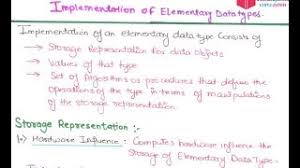 Implementation of Elementary Data types.
Implementation of an elementary data type Consists of
→ Storage Representation for data Objects
→ Values of that type
→ Set of Algorithms or procedures that define the
operations of the type in terms of manipulations
of the storage representation.
Storage Representation :
1:- Hardware Influence : Computer hardware influence the
Storage of Elementary Data Types.